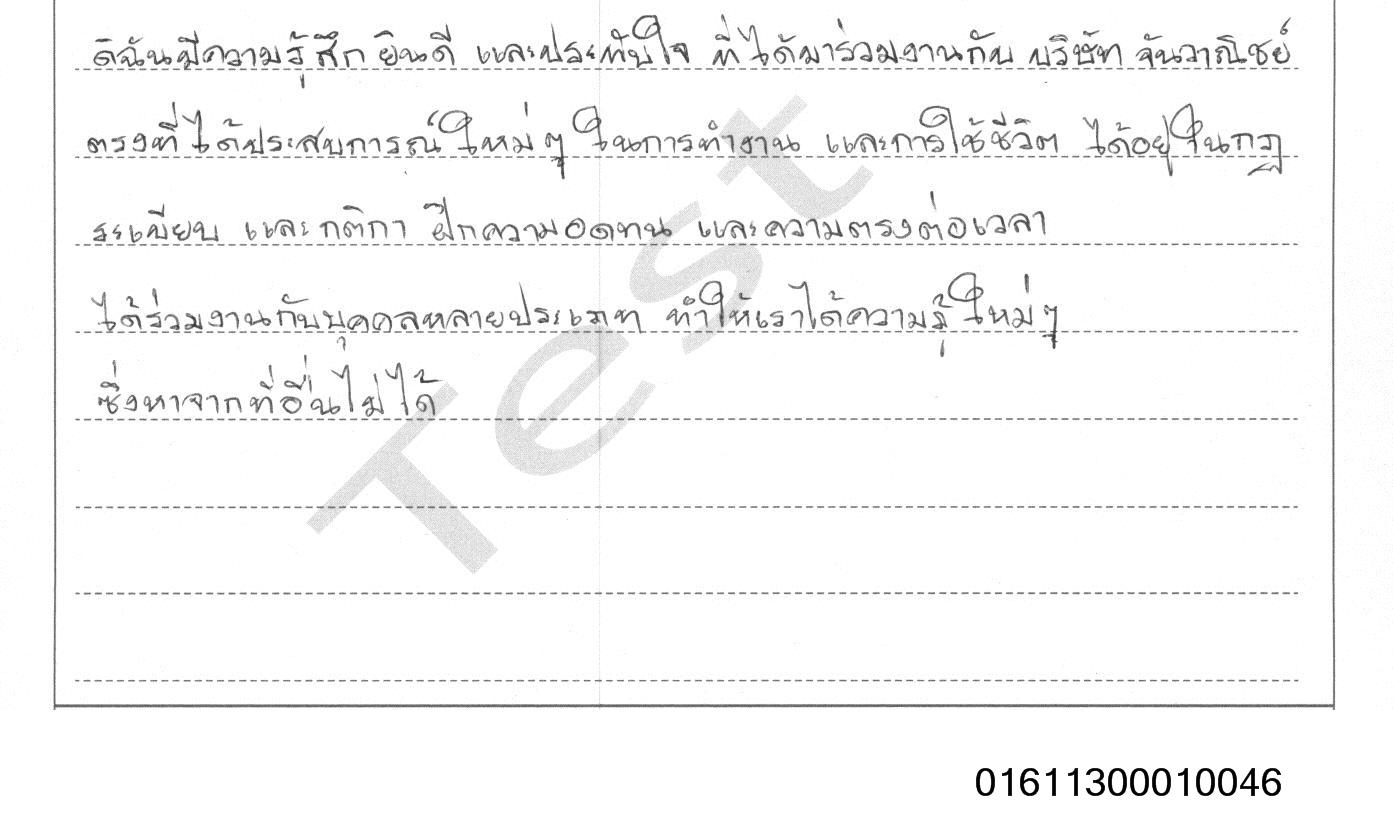 ดิฉันมีความรู้สึก ยินดี และประทับใจ ที่ได้มาร่วมงานกับ บริษัท จันวาณิชย์
ตรงที่ได้ประสบการณ์ใหม่ๆ ในการทำงาน และการใช้ชีวิต ได้อยู่ในกฎ
ระเบียบ และกติกา ฝึกความอดทน และความตรงต่อเวลา
ได้ร่วมงานกับบุคคลหลายประเภท ทำให้เราได้ความรู้ใหม่ๆ
ซึ่งหาจากที่อื่นไม่ได้
Test
01611300010046